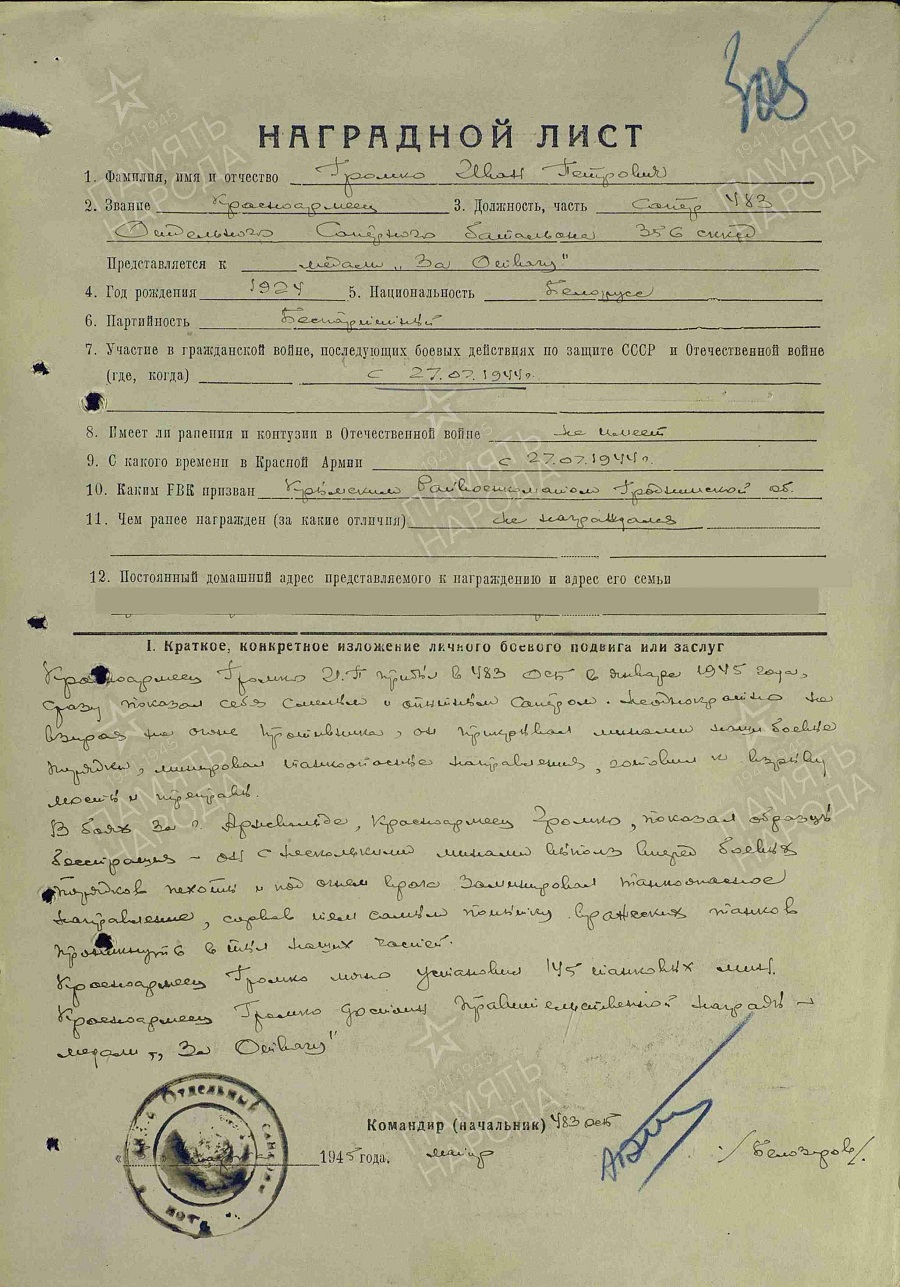 305
НАГРАДНОЙ ЛИСТ
1. Фамилия, имя и отчество Громко Иван Петрович
2. Звание Красноармеец 3. Должность, часть Сапёр 483
Отдельного Сапёрного батальона 356
Представляется к медали „За Отвагу"
4. Год рождения 1924 5. Национальность Белорусс
6. Партийность Беспартийный
7. Участие в гражданской войне, последующих боевых действиях по защите СССР и Отечественной войне
(где, когда) с 27.07.1944г.
8. Имеет ли ранения и контузии в Отечественной войне не имеет
9. С какого времени в Красной Армии с 27.07.1944г.
10. Каким РВК призван Райвоенкоматом Гродненской об.
11. Чем ранее награжден (за какие отличия) не награждался
12. Постоянный домашний адрес представляемого к награждению и адрес его семьи
I. Краткое, конкретное изложение личного боевого подвига или заслуг
Красноармеец Громко И.П прибыл в 483 ОСБ в январе 1945 года,
сразу показал себя смелым и опытным сапёром. Неоднократно не
взирая на огонь противника, он прикрывал минами наши боевые
порядки, минировал танкоопасные направления, готовил к взрыву
мосты и переправы.
В боях за г. Арнсвальде, Красноармеец Громко, показал образцы
бесстрашия – он с несколькими минами выполз вперед боевых
порядков пехоты и под огнем врага заминировал танкоопасное
направление, сорвав тем самым попытку вражеских танков
проникнуть в тыл наших частей.
Красноармеец Громко лично установил 145 танковых мин.
Красноармеец Громко достоин Правительственной награды –
медали „За Отвагу"
Командир (начальник) 483 осб
1945 года. майор /Белозеров/.
Отдельный саперный